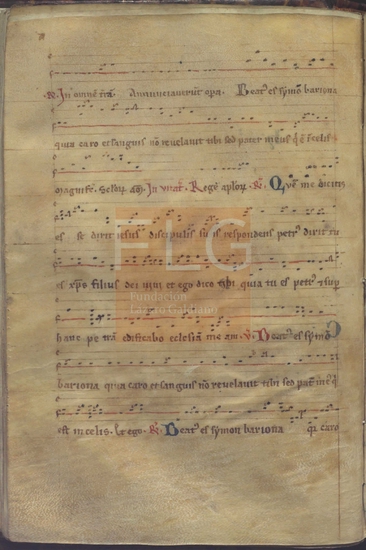 ℟. In omnē t̄rā. Annunciaverūt opa. Beat᷒ es symō bariona
quia caro et sanguis nō revelavit tibi sed pater meus q̄ ē ī celis
In vitat. Regē aplōꝝ. ℟. Quē me dicitis
se dicit iesus discipulis suis respondens petr᷒ dixit
es xp̄s filius dei vivi et ego dico tibi quia tu es petr᷒ et sup
hanc pe trā edificabo ecclesiā me am. ℣. Beat᷒ es symō
bariona quia caro et sanguis nō revelavit tibi sed pat̄ me᷒ q̄
est in celis. Et ego. ℟. Beat᷒ es symon bariona caro
FLG
Fundación
Lázaro Galdiano